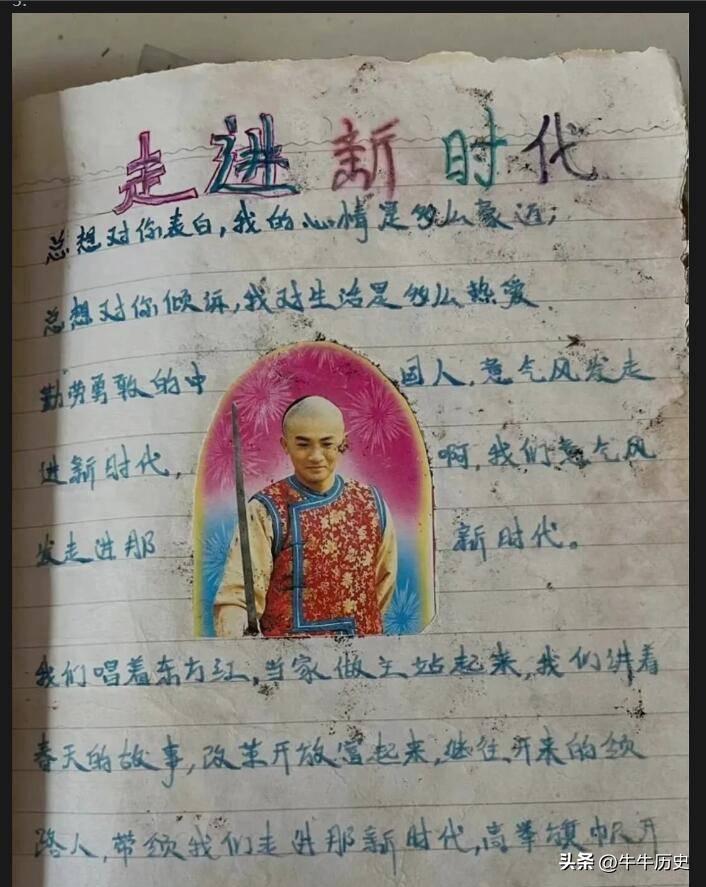 3.
走进新时代
总想对你表白，我的心情是多么豪迈；
总想对你倾诉，我对生活是多么热爱
勤劳勇敢的中 国人，意气风发走
进新时代， 啊，我们意气风
发走进那 新时代。
我们唱着东方红，当家做主站起来，我们讲着
春天的故事，改革开放富起来，继往开来的领
路人，带领我们走进那新时代，高举旗帜开
头条 @牛牛历史